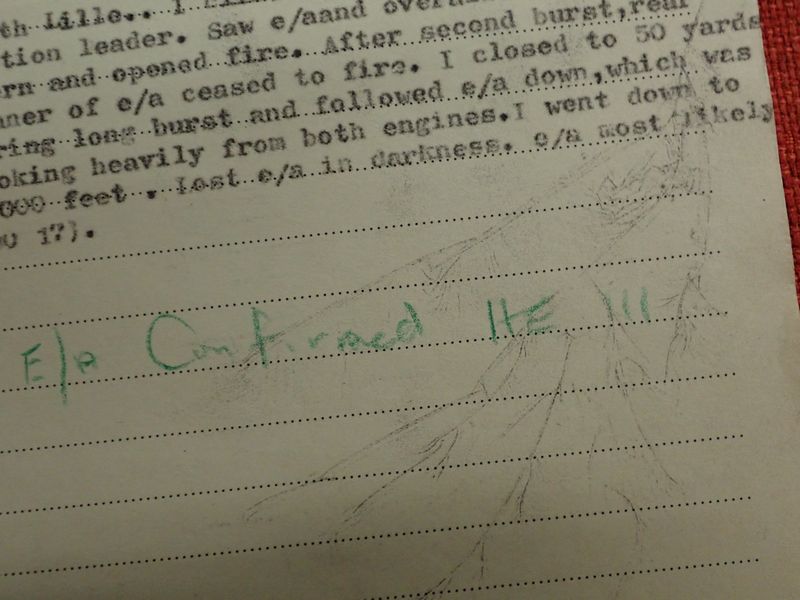 th Lille.. I
tion leader. Saw e/aand
rn and opened fire. After second burst,rear
ner of e/a ceased to fire. I closed to 50 yards
ring long burst and followed e/a down,which was
oking heavily from both engines.I went down to
000 feet . Lost e/a in darkness. e/a most likely
17).
E/a Confirmed HE 111